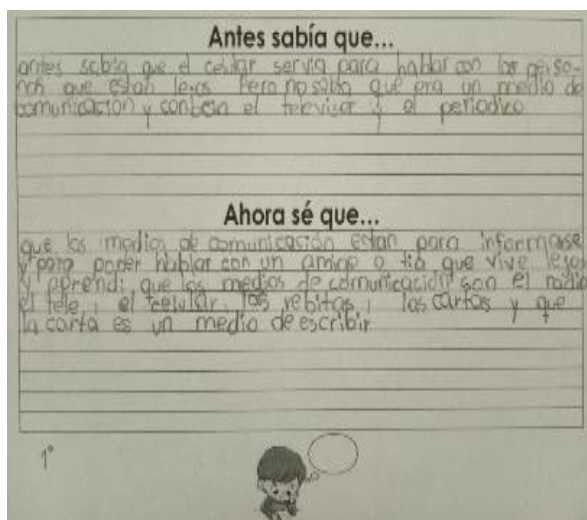 Antes sabía que...
antes sabia que el celular servia para hablar con las perso-
nas que estan lejos Pero no sabia que era un medio de
comunicacion y conocia el televisor y el periodico
Ahora sé que...
que los medios de comunicación estan para informarse
y para poder hablar con un amigo o tia que vive lejos
y aprendi que los medios de comunicación son el radio
el tele, el celular, los rebitas, las cartas y que
la carta es un medio de escribir
1°